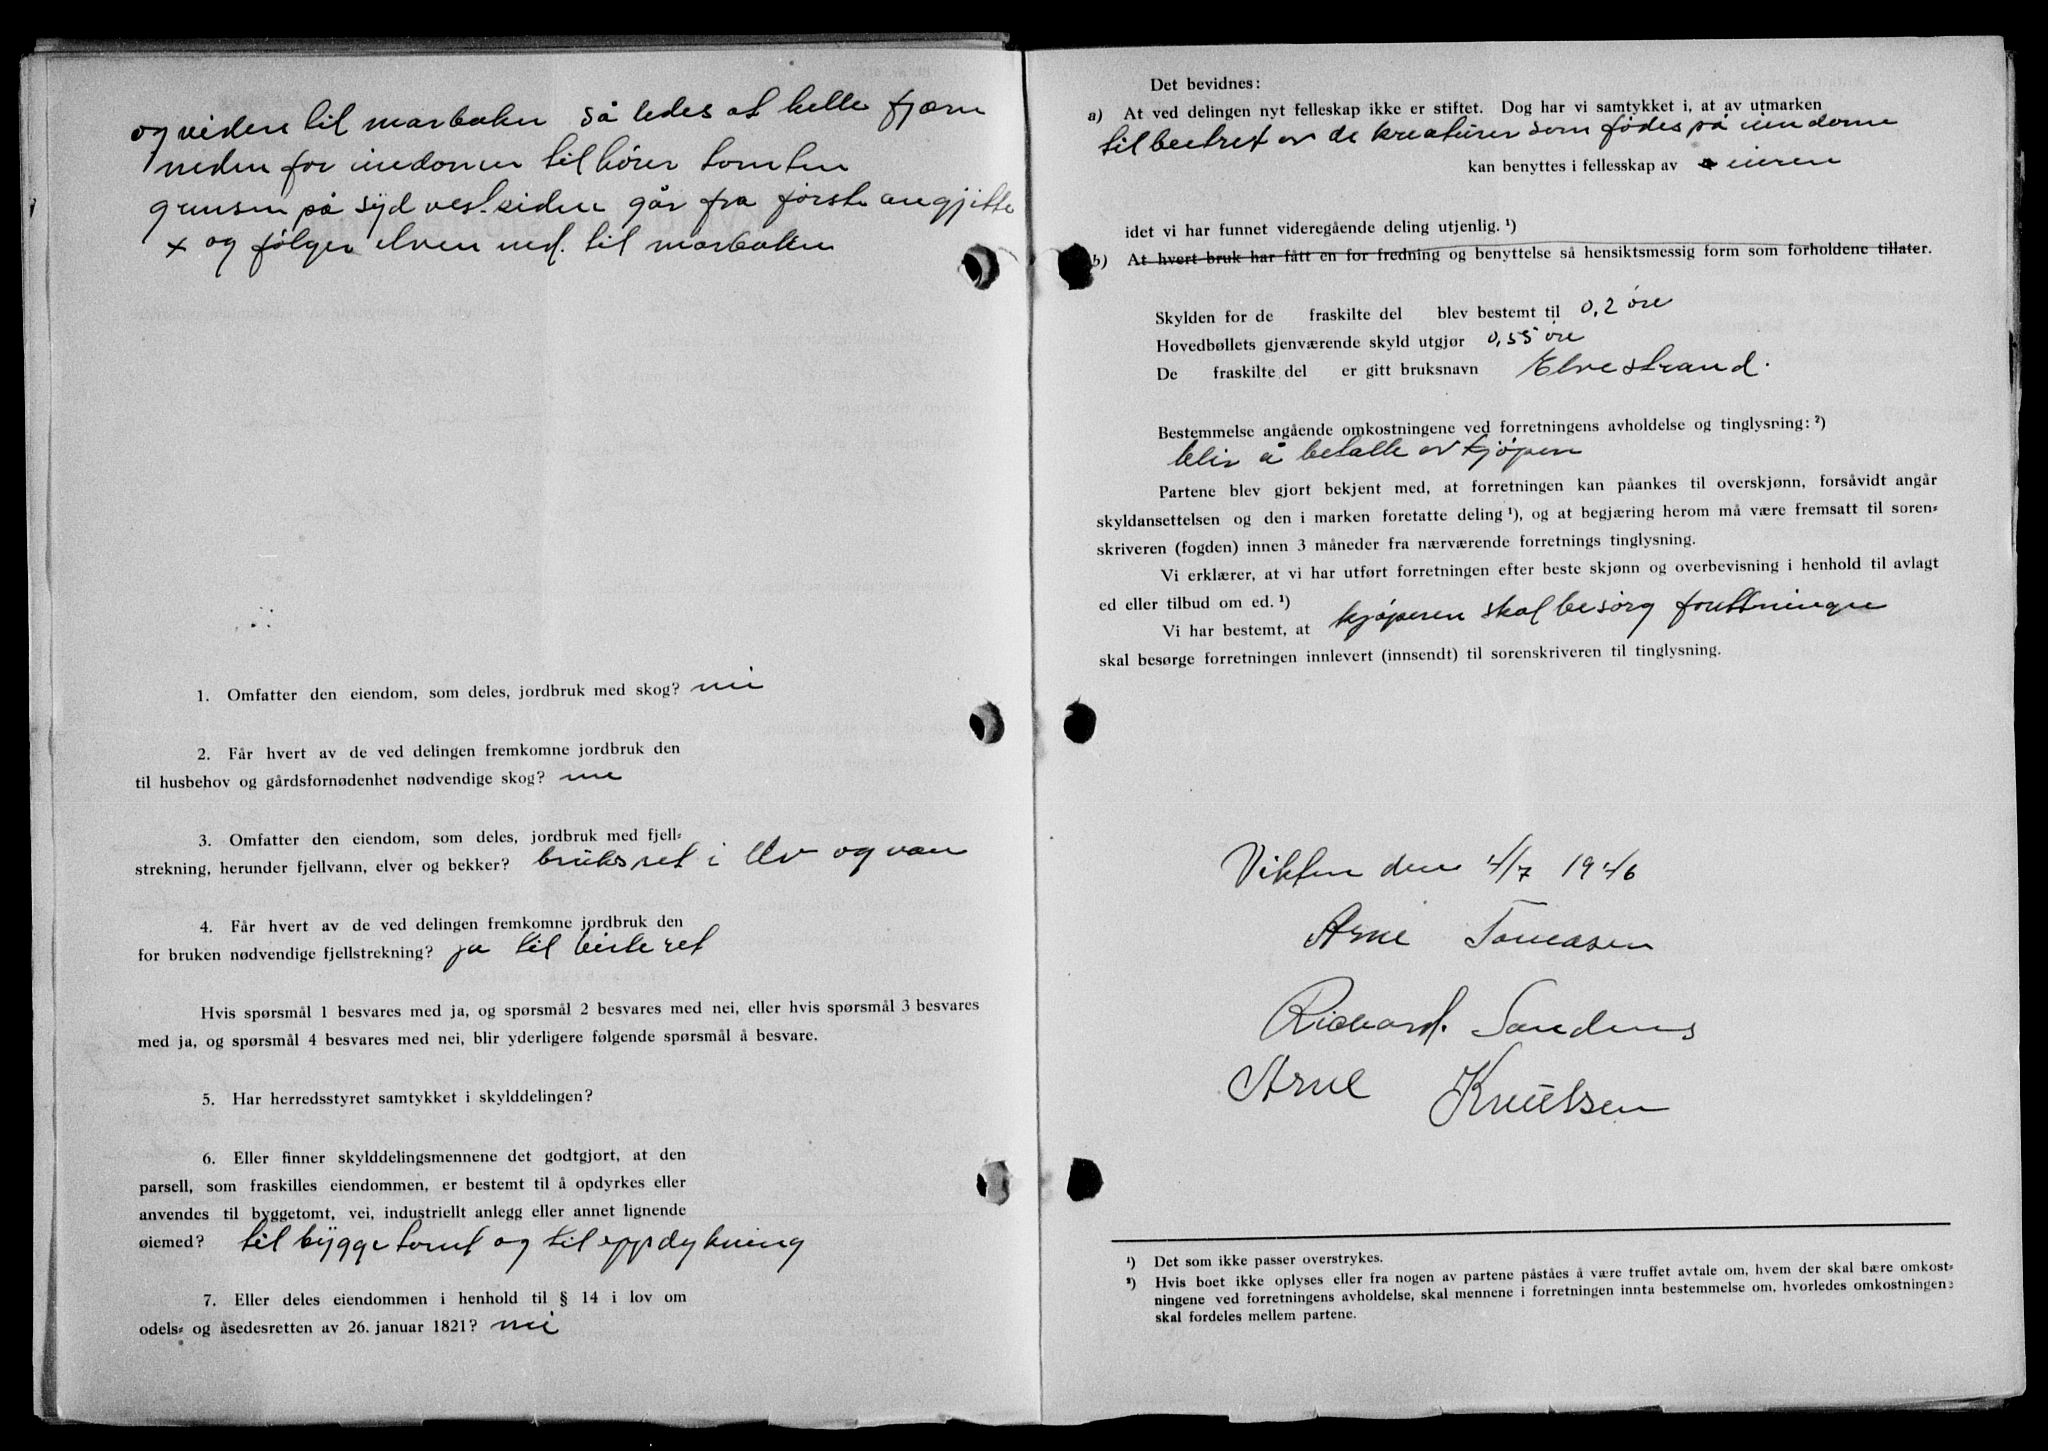 og videre til marbaken så ledes at hele fjæren
neden for eiedomen til hører tomten
grensen på syd vestsiden går fra første angjitte
x og følger elven ned. til marbaken
1. Omfatter den eiendom, som deles, jordbruk med skog? nei
2. Får hvert av de ved delingen fremkomne jordbruk den
til husbehov og gårdsfornødenhet nødvendige skog?
3. Omfatter den eiendom, som deles, jordbruk med fjell-
strekning, herunder fjellvann, elver og bekker? bruksret i elv og van
4. Får hvert av de ved delingen fremkomne jordbruk den
for bruken nødvendige fjellstrekning? ja til beiteret
Hvis spørsmål 1 besvares med ja, og spørsmål 2 besvares med nei, eller hvis spørsmål 3 besvares
med ja, og spørsmål 4 besvares med nei, blir yderligere følgende spørsmål å besvare.
5. Har herredsstyret samtykket i skylddelingen?
6. Eller finner skylddelingsmennene det godtgjort, at den
parsell, som fraskilles eiendommen, er bestemt til å opdyrkes eller
anvendes til byggetomt, vei, industriellt anlegg eller annet lignende
øiemed? til byggetomt og til oppdykning
7. Eller deles eiendommen i henhold til § 14 i lov om
odels- og åsedesretten av 26. januar 1821? nei
Det bevidnes:
a) At ved delingen nyt felleskap ikke er stiftet. Dog har vi samtykket i, at av utmarken
til beitret av de kreaturer som fødes på eiendomen
kan benyttes i fellesskap av eieren
idet vi har funnet videregående deling utjenlig. ¹)
b) At hvert bruk har fått en for fredning og benyttelse så hensiktsmessig form som forholdene tillater.
Skylden for de fraskilte del blev bestemt til 0,2 øre
Hovedbøllets gjenværende skyld utgjør 0,55 øre
De fraskilte del er gitt bruksnavn Elvestrand.
Bestemmelse angående omkostningene ved forretningens avholdelse og tinglysning: ²)
blir å betalle av kjøperen
Partene blev gjort bekjent med, at forretningen kan påankes til overskjønn, forsåvidt angår
skyldansettelsen og den i marken foretatte deling ¹), og at begjæring herom må være fremsatt til soren-
skriveren (fogden) innen 3 måneder fra nærværende forretnings tinglysning.
Vi erklærer, at vi har utført forretningen efter beste skjønn og overbevisning i henhold til avlagt
ed eller tilbud om ed. ¹)
Vi har bestemt, at kjøperen skal besørg forettningen
skal besørge forretningen innlevert (innsendt) til sorenskriveren til tinglysning.
Vikten den 4/7 1946
Arne Tomasen
Richard. Sandnes
Arne Knutsen
¹) Det som ikke passer overstrykes.
²) Hvis boet ikke oplyses eller fra nogen av partene påståes å være truffet avtale om, hvem der skal bære omkost-
ningene ved forretningens avholdelse, skal mennene i forretningen innta bestemmelse om, hvorledes omkostningen
skal fordeles mellem partene.